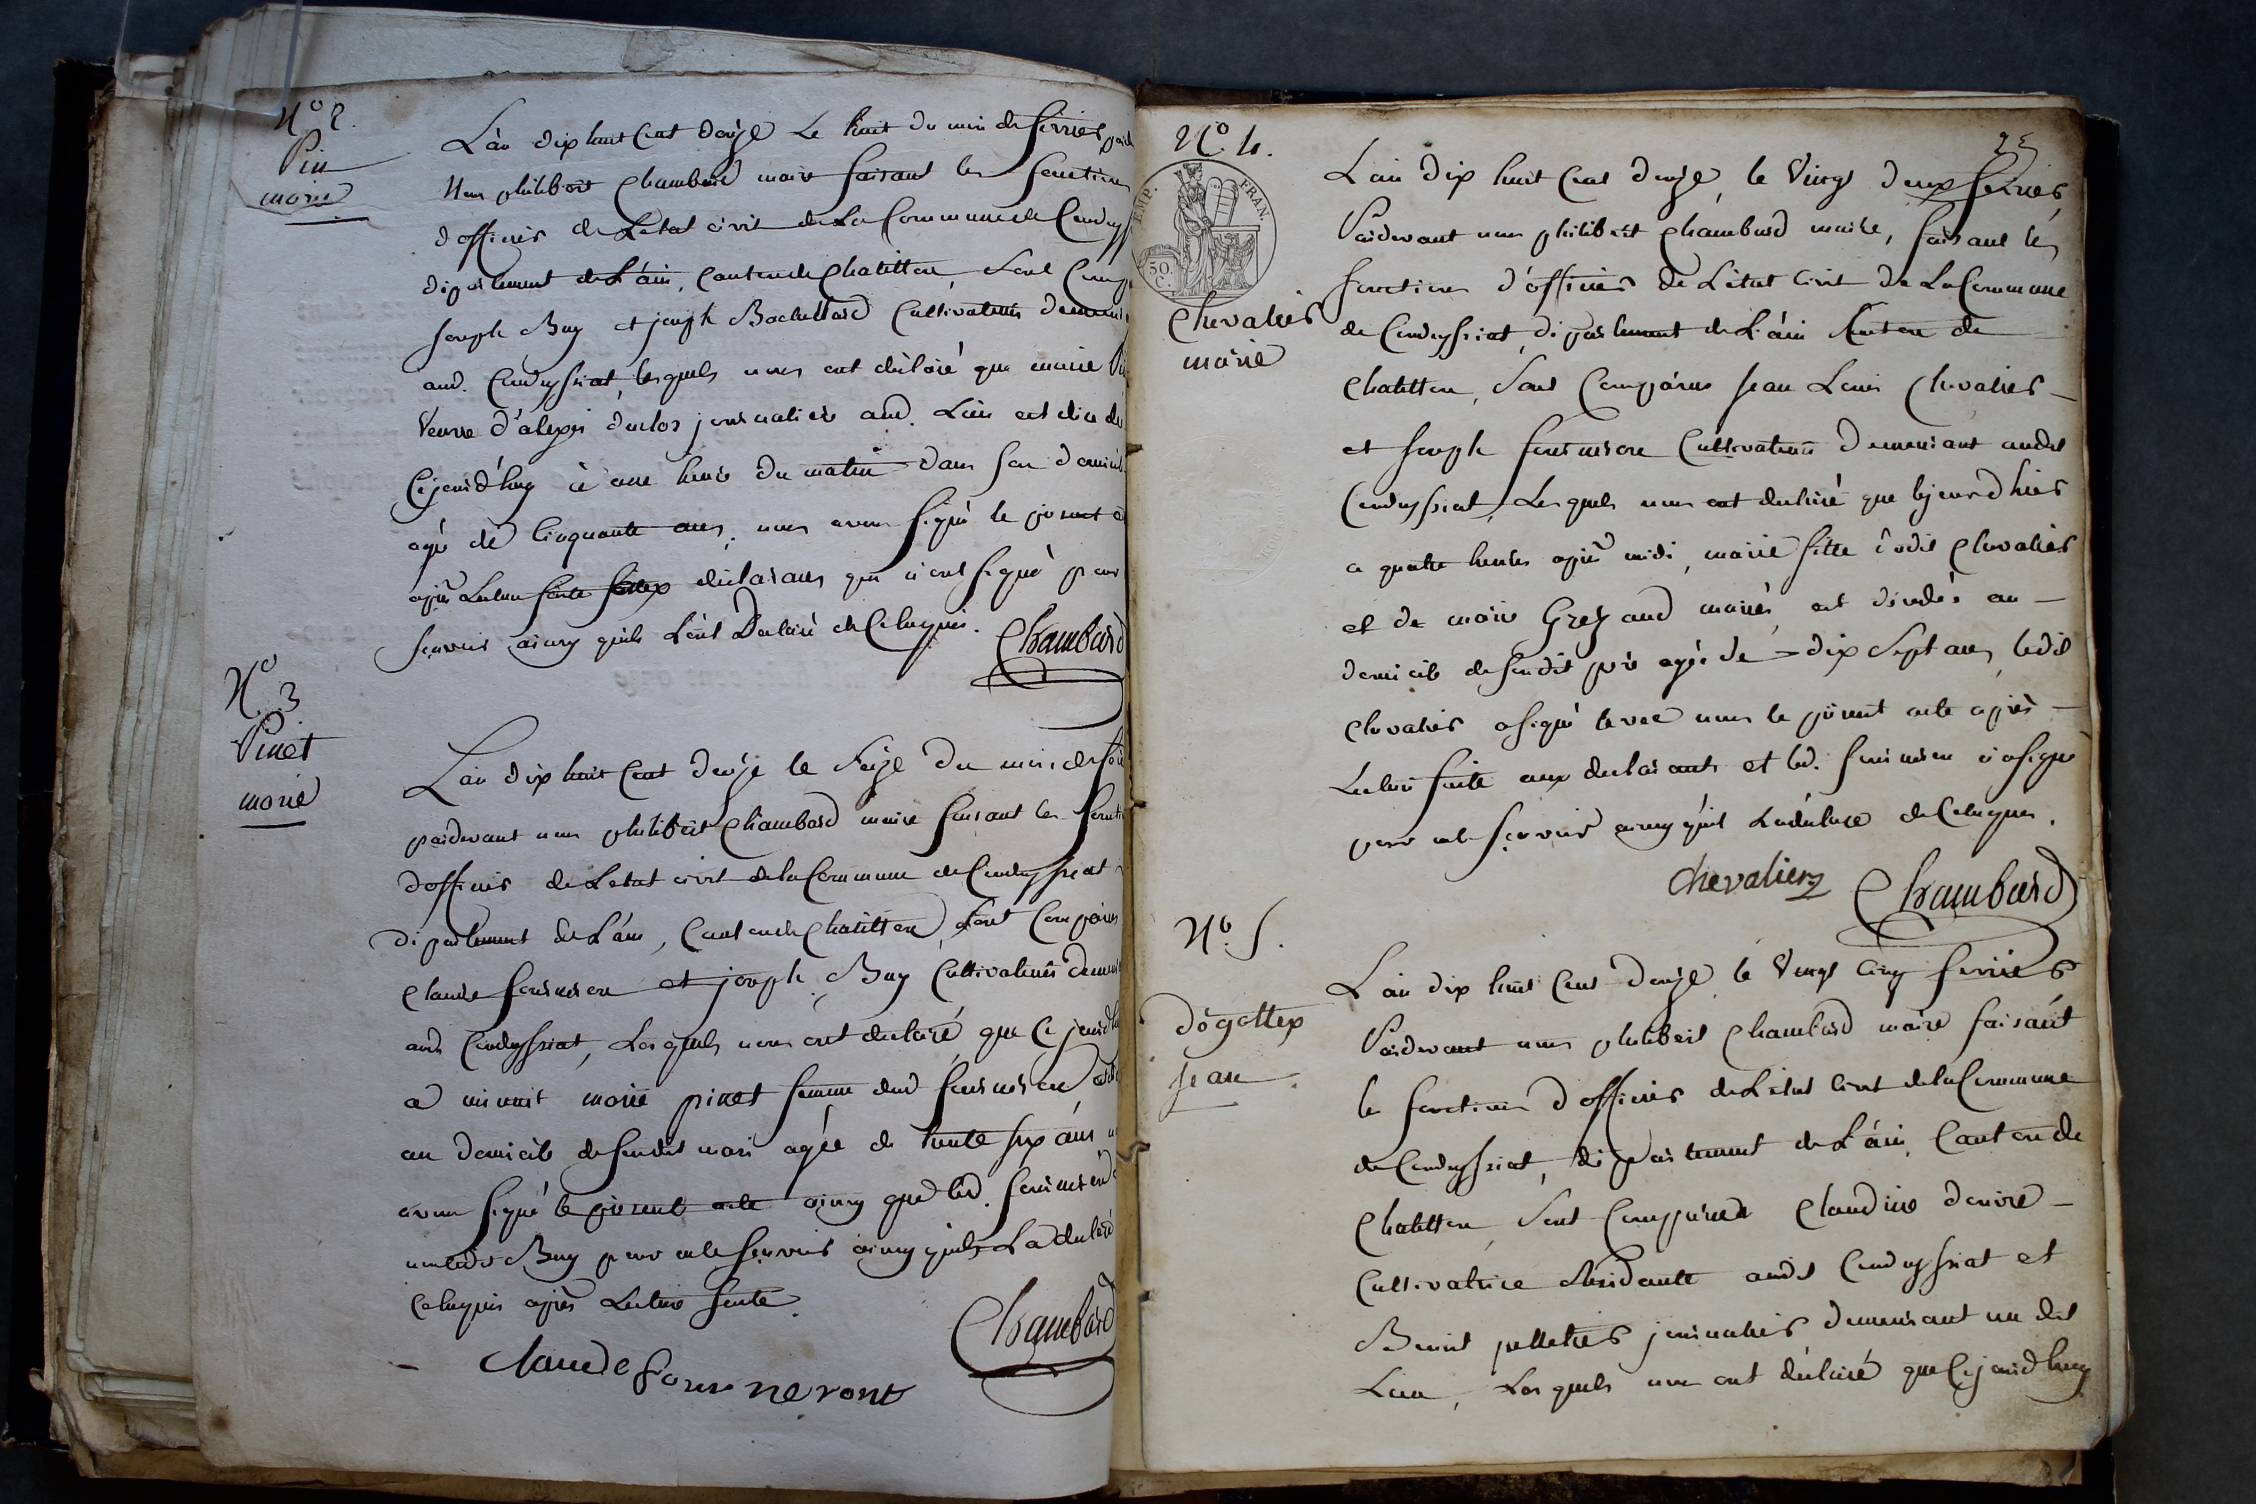 N.° 2.
Pin
marie
L'an dix huit Cent douze Le huit du mois de fevrier pard
Nous philibert Chambard maire faisant les fonctions
d'officier de L'etat civil de La Commune de Condeyss
département de L'ain, Canton de Chatillon Sont Comp
Joseph Buy et joseph Bachellard Cultivateurs demeura
aud. Condeyssiat, lesquels nous ont déclaré que marie Pin
Veuve d'alexis duclos journaliere aud. Lieu est décédée
Cejourd'huy à une heure du matin dans son domicile
agée de Cinquante ans, nous avons signé le present a
après Lecture faite déclarans qui n'ont signé pour
sçavoir ainsy quils L'ont Declaré de Celuyquis.
Chambard
N.° 3
Pinet
marie
L'an dix huit Cent douze le Seize du mois de fev
pardevant nous philibert Chambard maire faisant les foncti
d'officier de L'etat civil de la Commune de Condeyssiat
département de L'ain, Canton de Chatillon, sont Comparus
Claude fourneron et joseph Buy Cultivateurs demeura
aud Condeyssiat, Lesquels nous ont déclaré que Cejourdhu
a minuit marie pinet femme dud fourneron
au domicile de sondit mari agée de trente six ans n
avons signé le present acte ainsy que led. fourneron
non led. Buy pour ne le sçavoir ainsy quils La declaré
Celuyquis après Lecture faite.
Chambard
Claude fourneront
25
N.° 4.
EMP. FRAN.
50 C.
Chevalier
marie
L'an dix huit Cent douze, le Vingt deux fevrier
Pardevant nous philibert Chambard maire, faisant les
fonctions d'officier de L'état Civil de La Commune
de Condeyssiat, département de L'ain Canton de
Chatillon, Sont Comparus Jean Louis Chevalier
et Joseph fourneron Cultivateurs demeurant audit
Condeyssiat, Lesquels nous ont declaré que lejourdhier
a quatre heures après midi, marie fille dudit Chevalier
et de marie Grezaud mariés, est décédée au
domicile de sondit père agée de dix Sept ans, ledit
Chevalier a signé avec nous le présent acte après
Lecture faite aux declarants et led. fourneron n'a signé
pour ne le sçavoir ainsy quil La déclare de Celuyquis.
Chevalier
Chambard
N.° 5.
dégottex
Jean
L'an dix huit Cent douze, le Vingt Cinq fevrier
Pardevant nous philibert Chambard maire faisant
les fonctions d'officier de L'état Civil de la Commune
de Condeyssiat, département de L'ain, Canton de
Chatillon, Sont Comparus Claudine
Cultivatrice Residante audit Condeyssiat et
Benoit pelletier journalier demeurant au dit
Lieu, Lesquels nous ont déclaré que Cejourdhuy